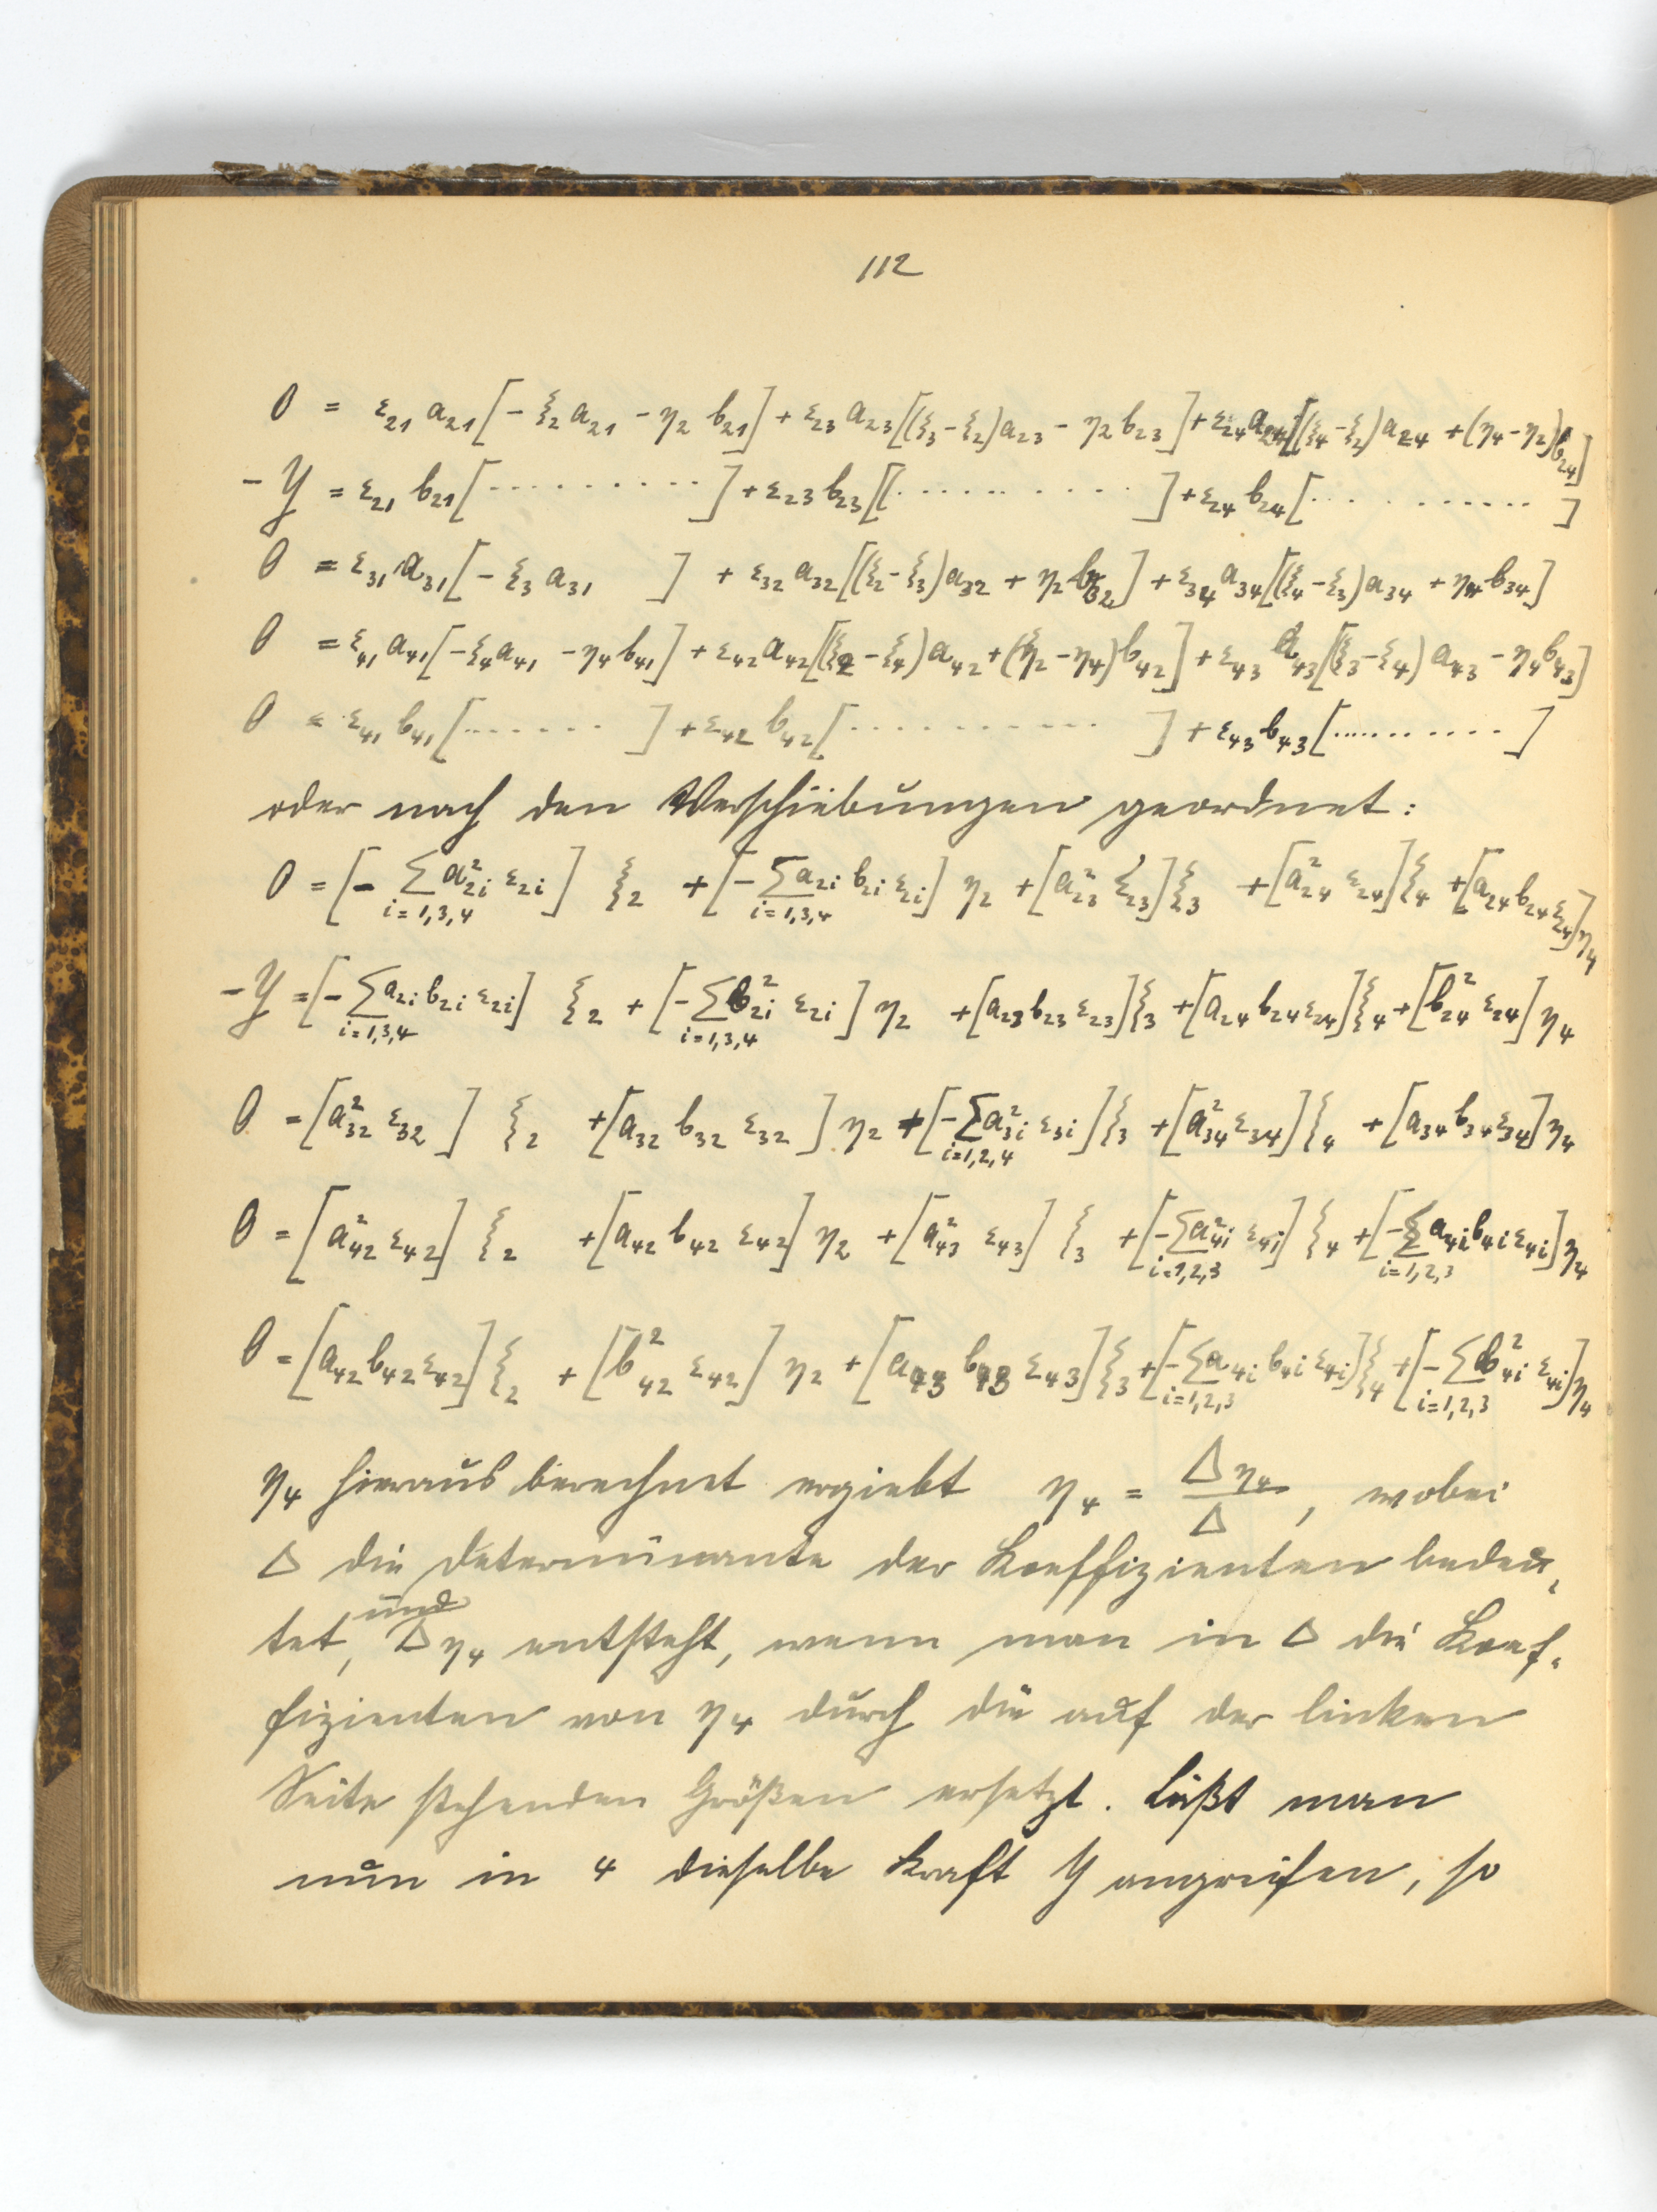 112
0 = ε₂₁ a₂₁ [ - ξ₂ a₂₁ - η₂ b₂₁ ] + ε₂₃ a₂₃ [(ξ₃ - ξ₂) a₂₃ - η₂ b₂₃ ] + ε₂₄ a₂₄ [(ξ₄ - ξ₂) a₂₄ + (η₄ - η₂) b₂₄ ]
- Y = ε₂₁ b₂₁ [ .......... ] + ε₂₃ b₂₃ [( .......... ] + ε₂₄ b₂₄ [ .......... ]
0 = ε₃₁ a₃₁ [ - ξ₃ a₃₁ ] + ε₃₂ a₃₂ [(ξ₂ - ξ₃) a₃₂ + η₂ b₃₂ ] + ε₃₄ a₃₄ [(ξ₄ - ξ₃) a₃₄ + η₄ b₃₄ ]
0 = ε₄₁ a₄₁ [ - ξ₄ a₄₁ - η₄ b₄₁ ] + ε₄₂ a₄₂ [(ξ₂ - ξ₄) a₄₂ + (η₂ - η₄) b₄₂ ] + ε₄₃ a₄₃ [(ξ₃ - ξ₄) a₄₃ - η₄ b₄₃ ]
0 = ε₄₁ b₄₁ [ ....... ] + ε₄₂ b₄₂ [ ............ ] + ε₄₃ b₄₃ [ .......... ]
oder nach den Verschiebungen geordnet:
0 = [ - ∑ a²₂ᵢ ε₂ᵢ ] ξ₂ + [ - ∑ a₂ᵢ b₂ᵢ ε₂ᵢ ] η₂ + [ a²₂₃ ε₂₃ ] ξ₃ + [ a²₂₄ ε₂₄ ] ξ₄ + [ a₂₄ b₂₄ ε₂₄ ] η₄
i = 1,3,4 i = 1,3,4
- Y = [ - ∑ a₂ᵢ b₂ᵢ ε₂ᵢ ] ξ₂ + [ - ∑ b²₂ᵢ ε₂ᵢ ] η₂ + [ a₂₃ b₂₃ ε₂₃ ] ξ₃ + [ a₂₄ b₂₄ ε₂₄ ] ξ₄ + [ b²₂₄ ε₂₄ ] η₄
i = 1,3,4 i = 1,3,4
0 = [ a²₃₂ ε₃₂ ] ξ₂ + [ a₃₂ b₃₂ ε₃₂ ] η₂ + [ - ∑ a²₃ᵢ ε₃ᵢ ] ξ₃ + [ a²₃₄ ε₃₄ ] ξ₄ + [ a₃₄ b₃₄ ε₃₄ ] η₄
i = 1,2,4
0 = [ a²₄₂ ε₄₂ ] ξ₂ + [ a₄₂ b₄₂ ε₄₂ ] η₂ + [ a²₄₃ ε₄₃ ] ξ₃ + [ - ∑ a²₄ᵢ ε₄ᵢ ] ξ₄ + [ - ∑ a₄ᵢ b₄ᵢ ε₄ᵢ ] η₄
i = 1,2,3 i = 1,2,3
0 = [ a₄₂ b₄₂ ε₄₂ ] ξ₂ + [ b²₄₂ ε₄₂ ] η₂ + [ a₄₃ b₄₃ ε₄₃ ] ξ₃ + [ - ∑ a₄ᵢ b₄ᵢ ε₄ᵢ ] ξ₄ + [ - ∑ b²₄ᵢ ε₄ᵢ ] η₄
i = 1,2,3 i = 1,2,3
η₄ hieraus berechnet ergiebt η₄ = Δη₄ / Δ , wobei
Δ die Determinante der Koeffizienten bedeu-
tet, und Δη₄ entsteht, wenn man in Δ die Koef-
fizienten von η₄ durch die auf der linken
Seite stehenden Größen ersetzt. Läßt man
nun in 4 dieselbe Kraft Y angreifen, so